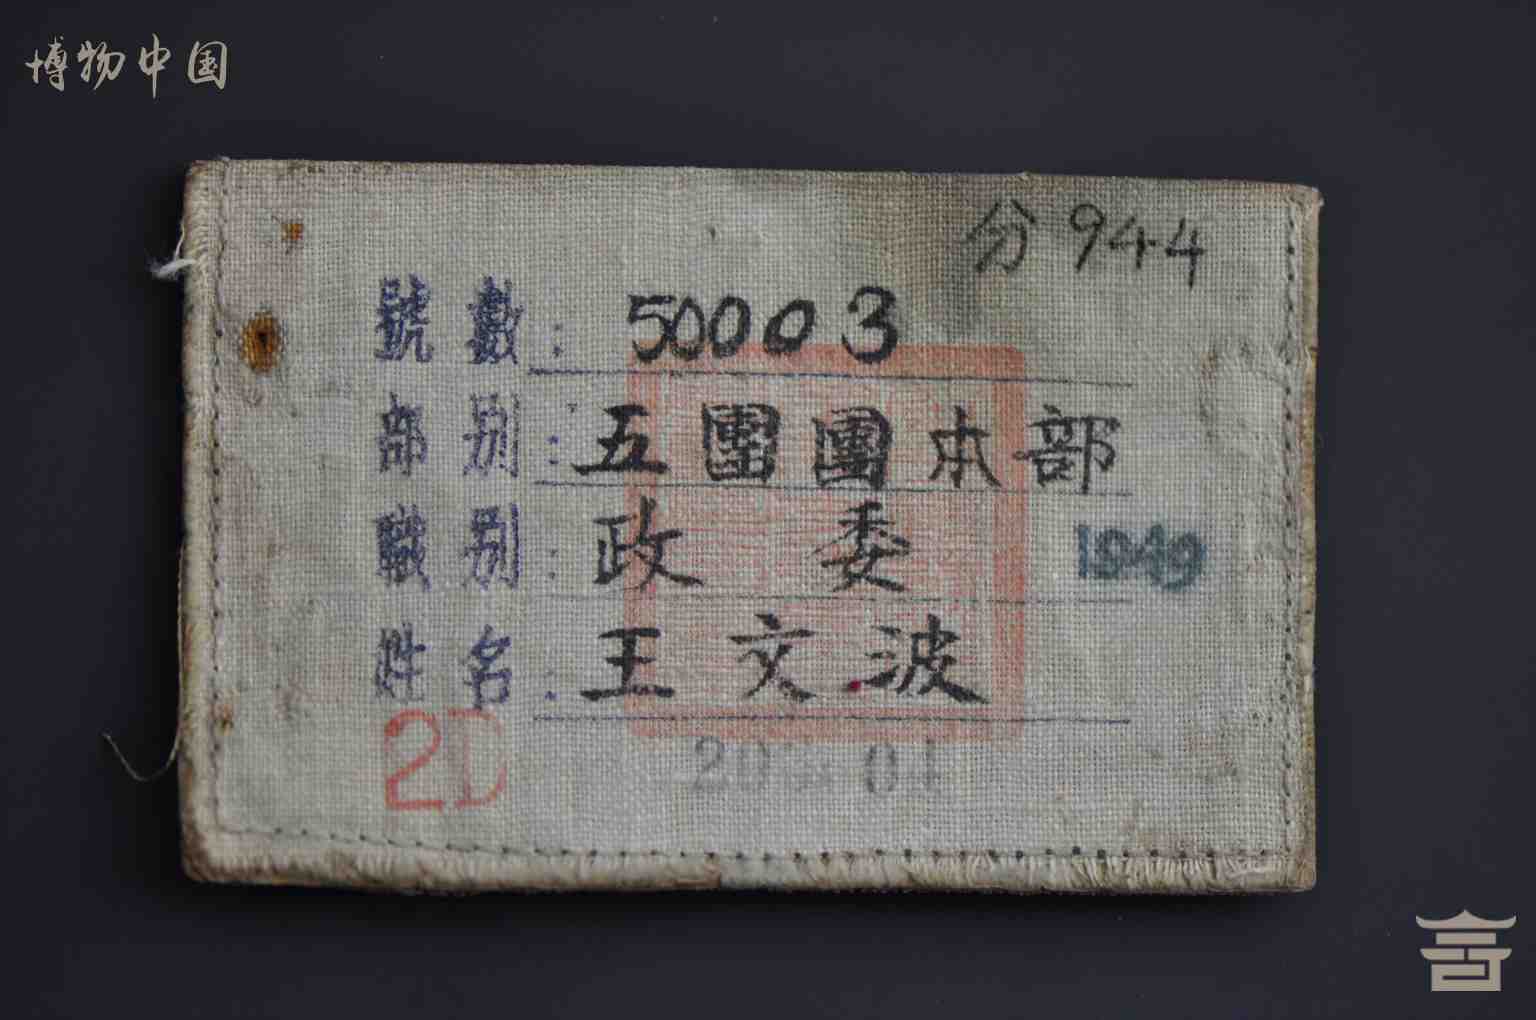 博物中国
分944
號數：50003
部别：五團團本部
職别：政委
1949
姓名：王文波
2D